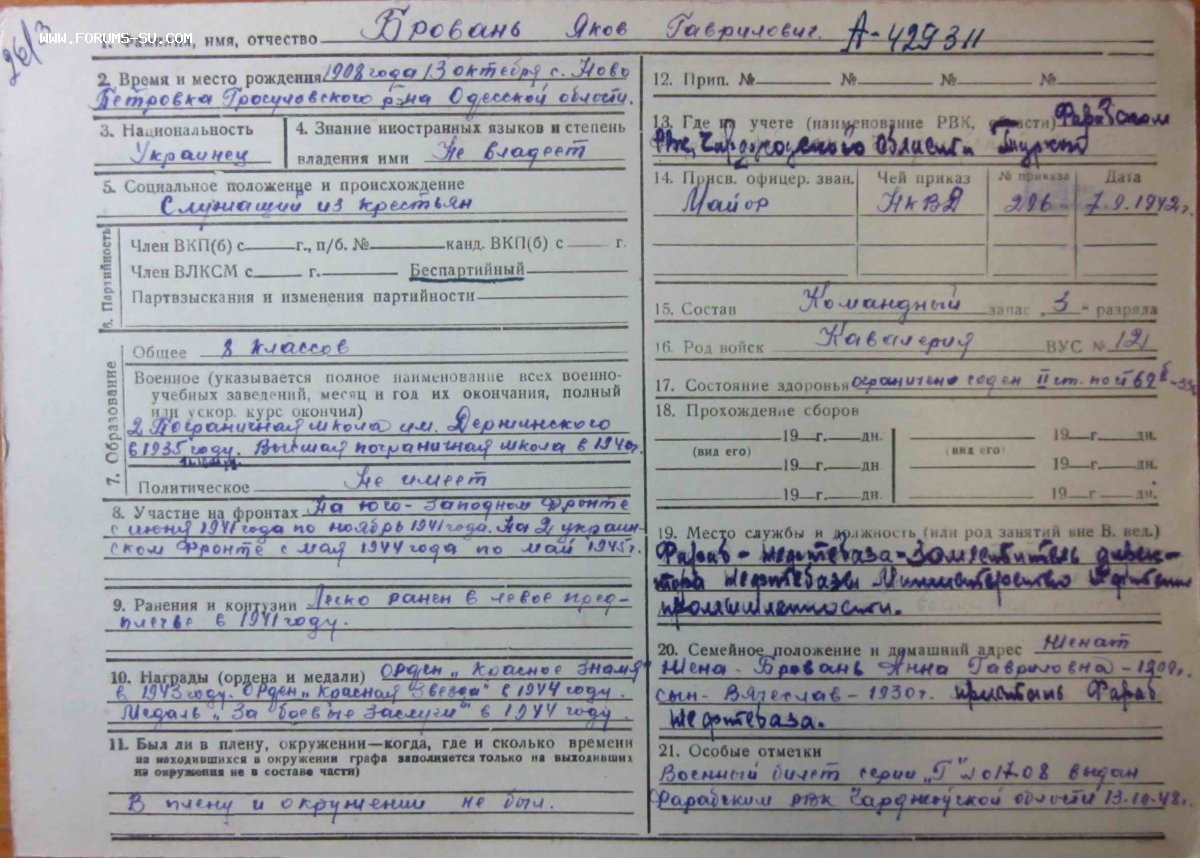 26/3
WWW.FORUMS-SU.COM
1. Фамилия, имя, отчество Бровань Яков Гаврилович. А-429311
2. Время и место рождения 1908 года 13 октября с. Ново
Петровка Гросуловского р-на Одесской области.
3. Национальность
Украинец
4. Знание иностранных языков и степень
владения ими Не владеет
5. Социальное положение и происхождение
Служащий из крестьян
6. Партийность
Член ВКП(б) с г., п/б. № канд. ВКП(б) с г.
Член ВЛКСМ с г. Беспартийный
Партвзыскания и изменения партийности
7. Образование
Общее 8 классов
Военное (указывается полное наименование всех военно-
учебных заведений, месяц и год их окончания, полный
или ускор. курс окончил)
2 Пограничная школа им. Держинского
в 1935 году. Высшая пограничная школа в 1940г.
Политическое Не имеет
8. Участие на фронтах На юго-Западном Фронте
с июня 1941 года по ноябрь 1941 года. На 2 украин-
ском Фронте с мая 1944 года по май 1945г.
9. Ранения и контузии Легко ранен в левое пред-
плечье в 1941 году.
10. Награды (ордена и медали) Орден „Красное Знамя"
в 1943 году. Орден „Красная Звезда" в 1944 году.
Медаль „За боевые заслуги" в 1944 году.
11. Был ли в плену, окружении—когда, где и сколько времени
на находившихся в окружении графа заполняется только на выходивших
из окружения не в составе части)
В плену и окружении не был.
12. Прип. № № № №
13. Где на учете (наименование РВК, области) Фарабском
РВК, Чарджоуской Области Туркм
14. Присв. офицер. зван. Чей приказ № приказа Дата
Майор НКВД 296 7.9.1942г.
15. Состав Командный запас „3 - разряда
16. Род войск Кавалерия ВУС № 121
17. Состояние здоровья ограничено годен II ст. по ст 62б
18. Прохождение сборов
19 г. дн. 19 г. дн.
(вид его) (вид его)
19 г. дн. 19 г. дн.
19 г. дн. 19 г. дн.
19. Место службы и должность (или род занятий вне В. вед.)
Фараб - Нефтебаза - Заместитель дирек-
тора Нефтебазы Министерство Нефтяной
промышленности.
20. Семейное положение и домашний адрес Женат
Жена - Бровань Анна Гавриловна - 1909г.
сын - Вячеслав - 1930г. пристань Фараб
Нефтебаза.
21. Особые отметки
Военный билет серии „Г" № 01708 выдан
Фарабским РВК Чарджоуской области 13.10.48г.